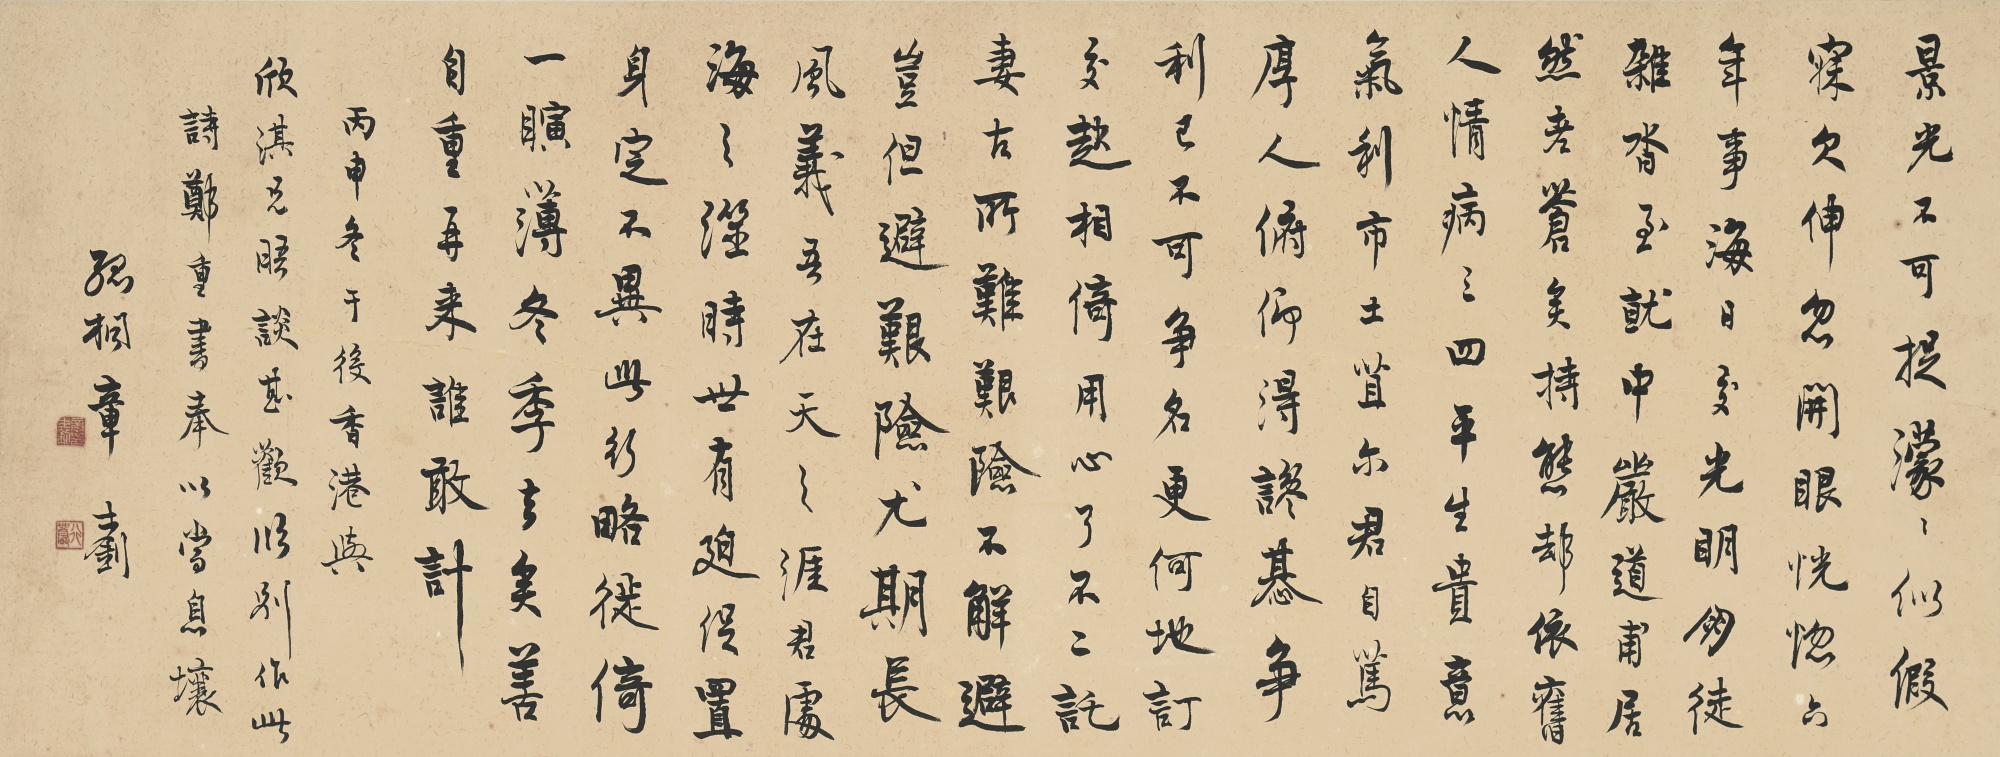 景光不可捉濛々似假
寐欠伸忽開眼恍惚六
年事海日交光明勿徒
雜沓至就中嚴道甫居
然老蒼矣持態却依舊
人情病三四平生貴意
氣利市土苴尔君自篤
厚人俯仰得讒惎争
利已不可争名更何地訂
交趑相倚用心了不二託
妻古所難艱險不解避
豈但避艱險尤期長
風義吾在天之涯君處
海之澨時世有迫促置
身定不異此行略徙倚
一瞚薄冬季去矣善
自重再来誰敢計
丙申冬干役香港與
欣淇兄晤談甚歡臨別作此
詩鄭重書奉以當息壤
孤桐章士釗